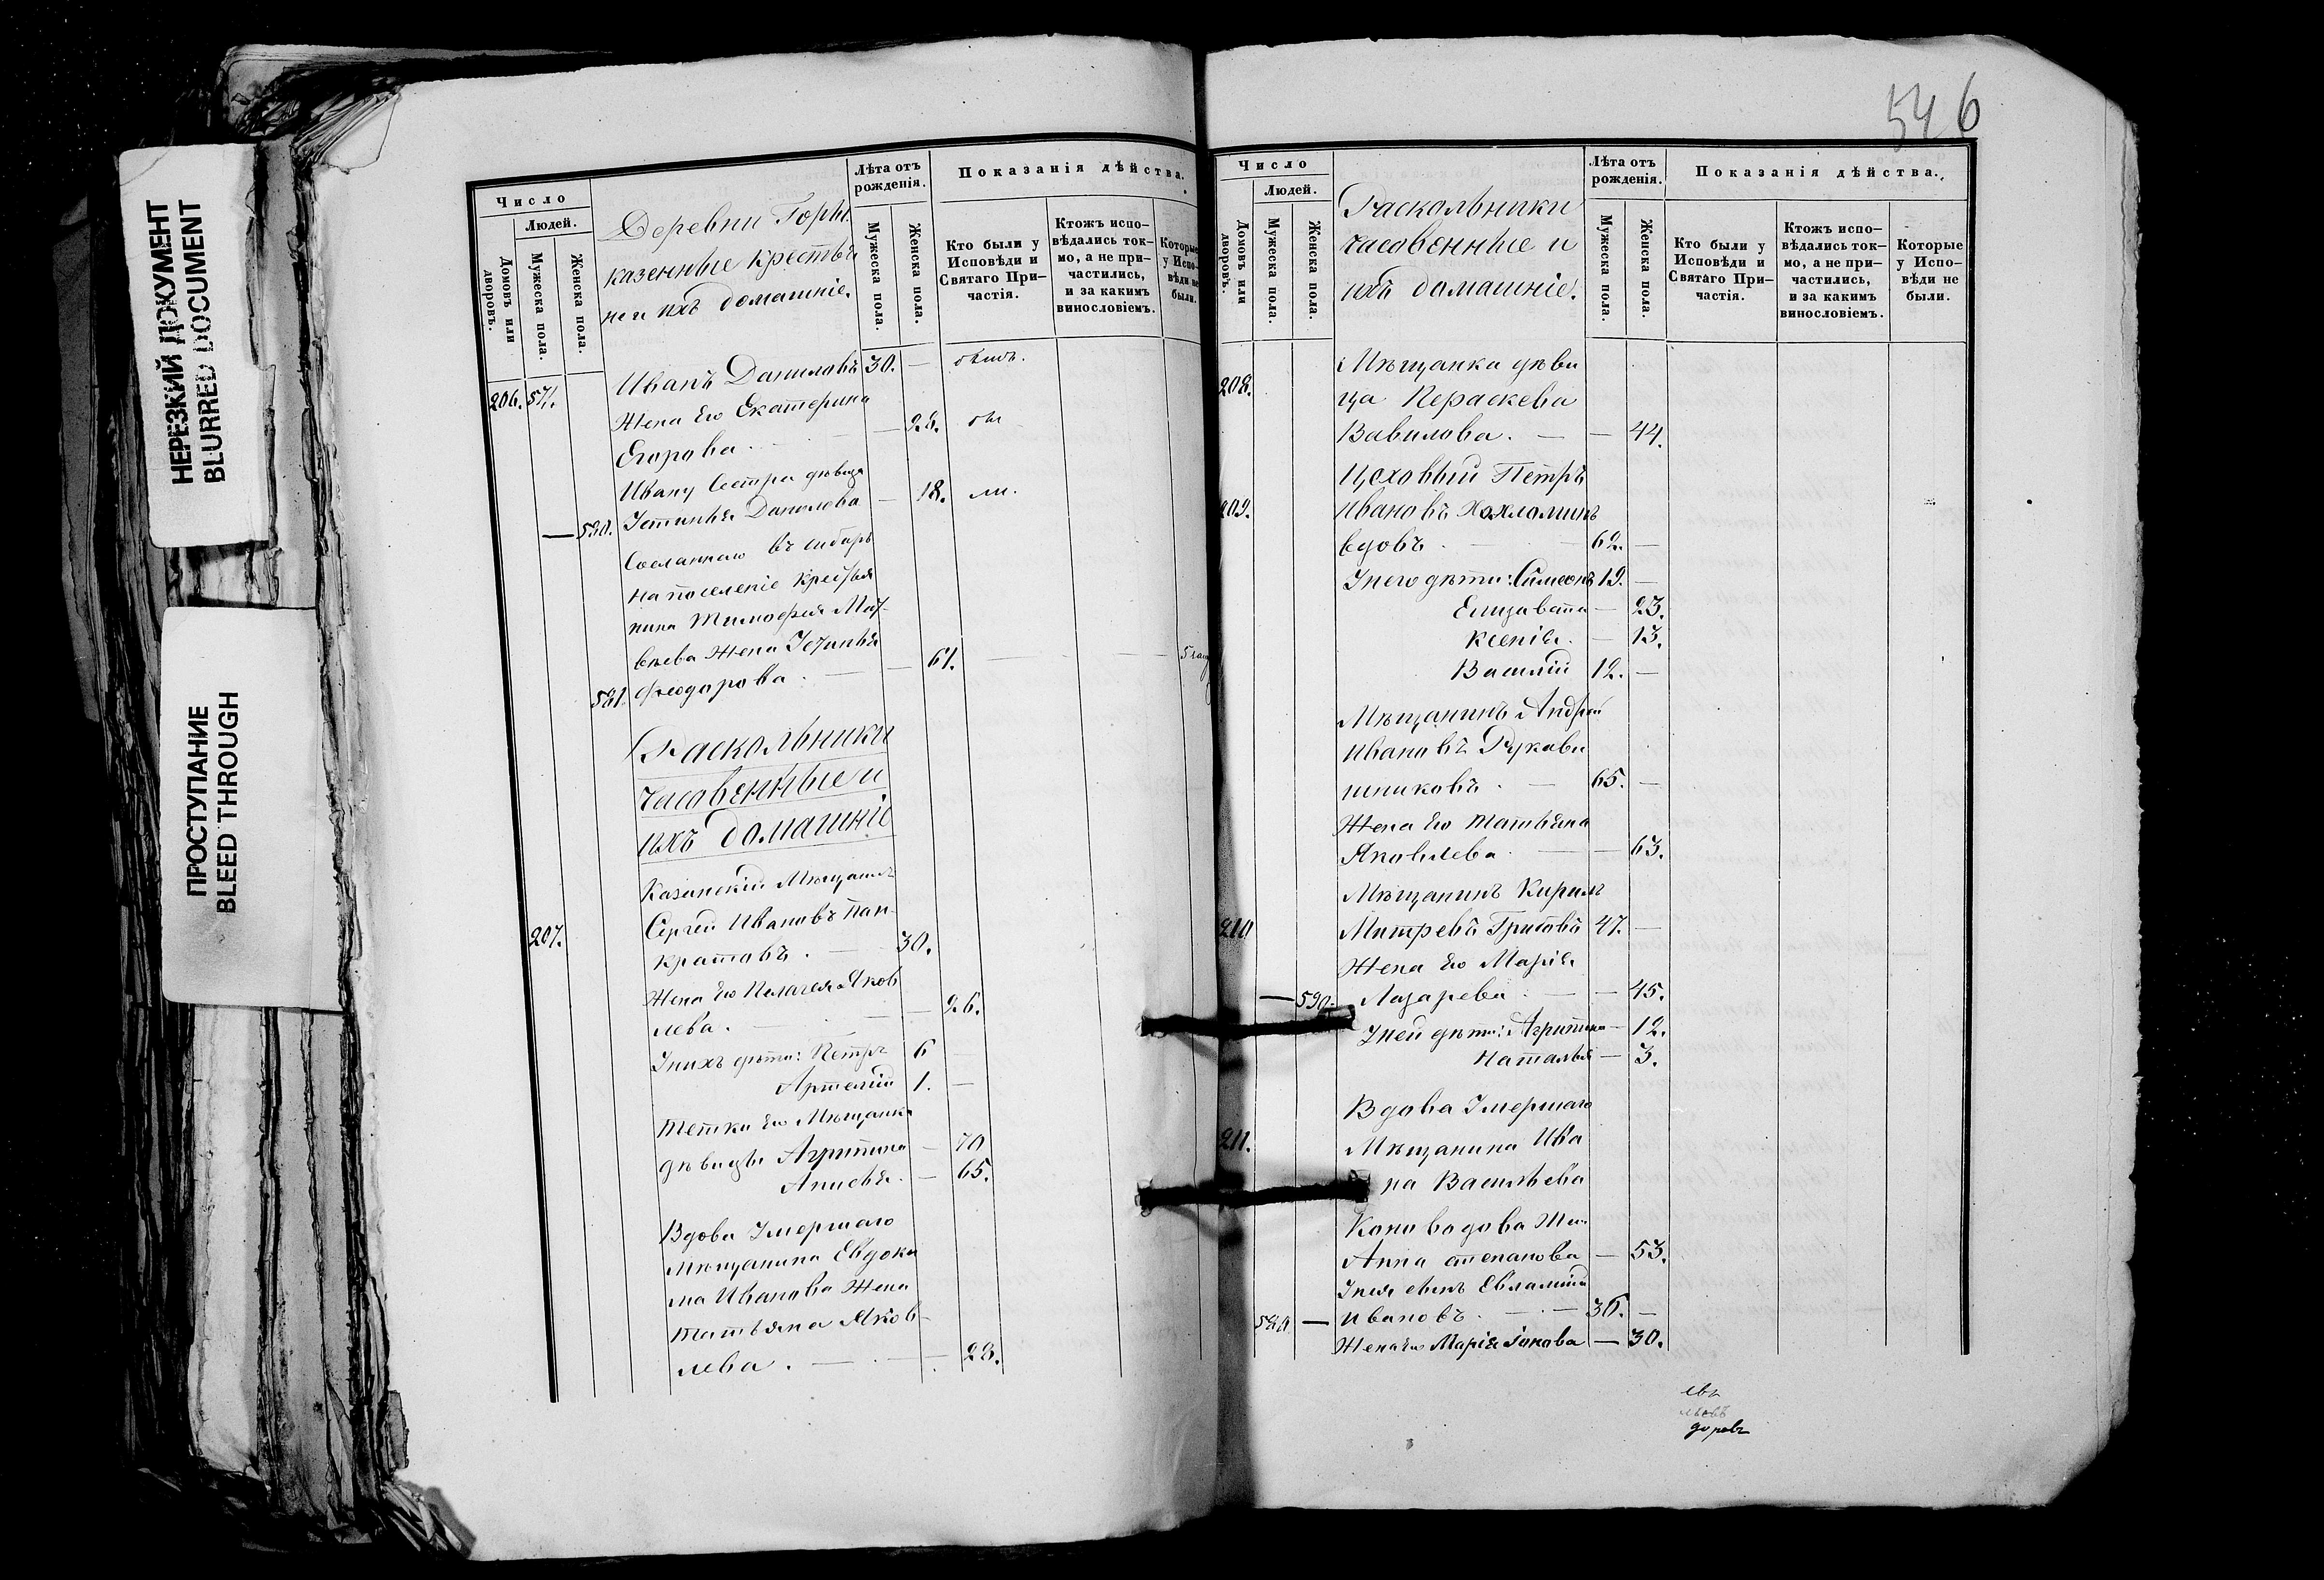 НЕРЕЗКИЙ ДОКУМЕНТ
BLURRED DOCUMENT
ПРОСТУПАНИЕ
BLEED THROUGH
Число
Людей.
Домовъ или дворовъ.
Мужеска пола.
Женска пола.
Деревни Горы
казенные крестья
не и ихъ домашніе.
Лѣта отъ рожденія.
Мужеска пола.
Женска пола.
Показанія дѣйства.
Кто были у Исповѣди и Святаго При-частія.
Ктожъ испо-вѣдались ток-мо, а не при-частились, и за какимъ винословіемъ.
Которые у Испо-вѣди не были.
206. 571. Иванъ Даниловъ 30. —
Жена Его Екатерина
Егорова. — 28.
Ивану Сестра дѣвица
— 580. Устинья Данилова — 18.
Сосланнаго въ Сибирь
на поселеніе Крестья
нина Тимофея Мат-
вѣева Жена Устинья
581. Феодорова. — — 61.
Раскольники
часовенные и
ихъ домашніе
Казанскій Мѣщанинъ
207. Сергей Ивановъ Пан-
кратовъ. — 30.
Жена Его Пелагея Яков
лева. — — 26.
У нихъ дѣти: Петръ 6 —
Артемій 1. —
Тетки Его Мѣщанки
дѣвицы Агрипина — 70
Анисья. — 65.
Вдова Умершаго
Мѣщанина Евдоки
ма Иванова Жена
Татьяна Яков-
лева. — — 28.
546
Число
Людей.
Домовъ или дворовъ.
Мужеска пола.
Женска пола.
Раскольники
часовенные и
ихъ домашніе.
Лѣта отъ рожденія.
Мужеска пола.
Женска пола.
Показанія дѣйства.
Кто были у Исповѣди и Святаго При-частія.
Ктожъ испо-вѣдались ток-мо, а не при-частились, и за какимъ винословіемъ.
Которые у Испо-вѣди не были.
Мѣщанка дѣви
208. ца Параскева
Вавилова. — — 44.
Цеховый Петръ
209. Ивановъ
вдовъ. — 62. —
У него дѣти: Симеонъ 19. —
Елизавета — 23.
Ксенія. — 13.
Василій 12. —
Мѣщанинъ Андрей
Ивановъ Рукави
шниковъ. — 65. —
Жена Его Татьяна
Яковлева. — — 63.
Мѣщанинъ Кирилъ
210 Митревъ 47. —
Жена Его Марія
— 590. Лазарева. — — 45.
У ней дѣти: Агрипина — 12.
Наталья — 3.
Вдова Умершаго
211. Мѣщанина Ива
на Васильева
Коновалова Жена
Анна Степанова — 53.
У нея сынъ Евлампій
580 — Ивановъ. — 36. —
Жена Его Марія Іонова — 30.
евъ
львъ
доровъ